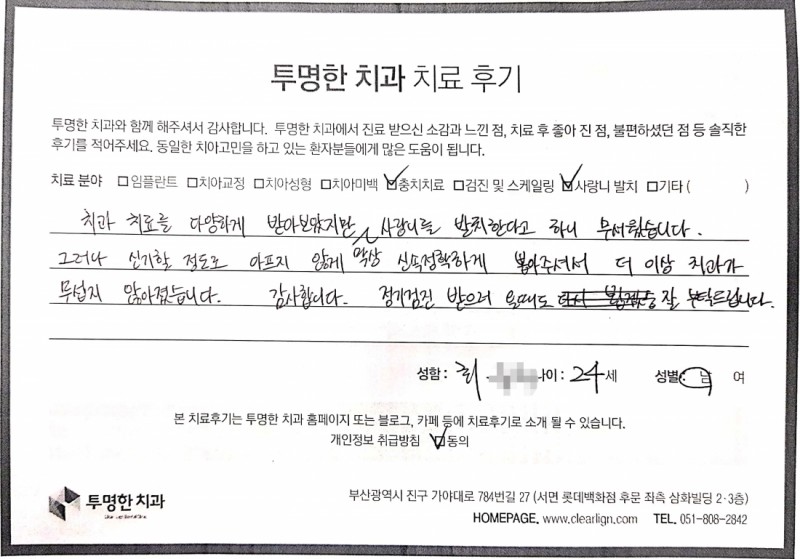 투명한 치과 치료 후기
투명한 치과와 함께 해주셔서 감사합니다. 투명한 치과에서 진료 받으신 소감과 느낀 점, 치료 후 좋아 진 점, 불편하셨던 점 등 솔직한
후기를 적어주세요. 동일한 치아고민을 하고 있는 환자분들에게 많은 도움이 됩니다.
치료 분야 □임플란트 □치아교정 □치아성형 □치아미백 ☑충치치료 □검진 및 스케일링 ☑사랑니 발치 □기타 ( )
치과 치료를 다양하게 받아보았지만 사랑니를 발치한다고 하니 무서웠습니다.
그러나 신기할 정도로 아프지 않게 막상 신속정확하게 뽑아주셔서 더 이상 치과가
무섭지 않아졌습니다. 감사합니다. 정기검진 받으러 올때도 잘 부탁드립니다.
성함 : 최 나이 : 24 세 성별 : 남 여
본 치료후기는 투명한 치과 홈페이지 또는 블로그, 카페 등에 치료후기로 소개 될 수 있습니다.
개인정보 취급방침 ☑동의
투명한 치과
부산광역시 진구 가야대로 784번길 27 (서면 롯데백화점 후문 좌측 삼화빌딩 2-3층)
HOMEPAGE. www.clearlign.com TEL. 051-808-2842